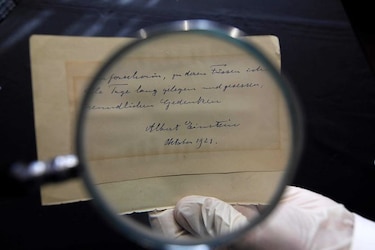 Forscherin, zu deren Füssen ich
Tage lang gelegen und gesessen,
freundlichen Gedenken
Albert Einstein
October 1921.